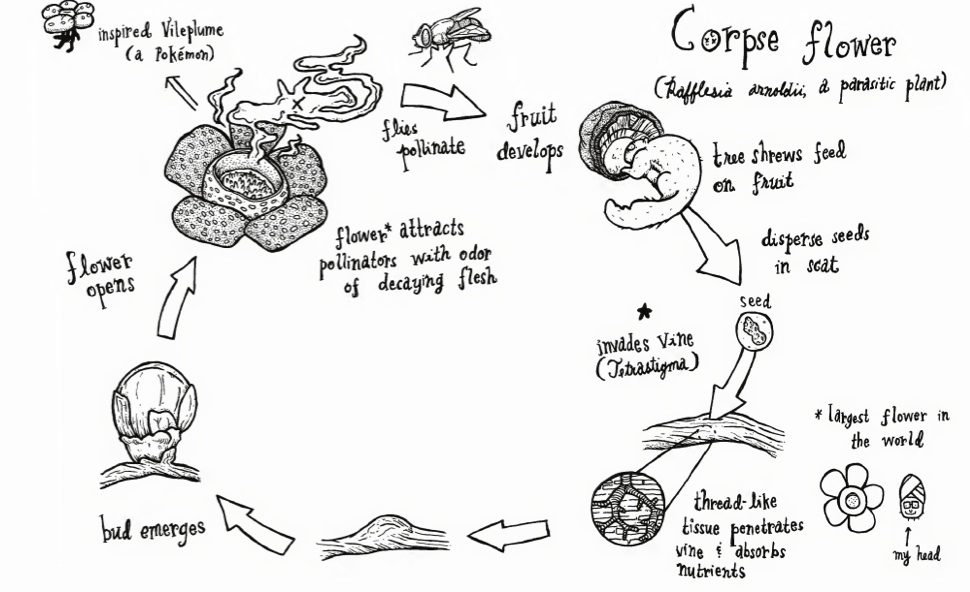 Corpse flower
(Rafflesia arnoldii, a parasitic plant)
inspired Vileplume
(a Pokémon)
flies
pollinate
fruit
develops
tree shrews feed
on fruit
disperse seeds
in scat
seed
★
invades vine
(Tetrastigma)
thread-like
tissue penetrates
vine & absorbs
nutrients
* largest flower in
the world
my head
bud emerges
flower
opens
flower* attracts
pollinators with odor
of decaying flesh